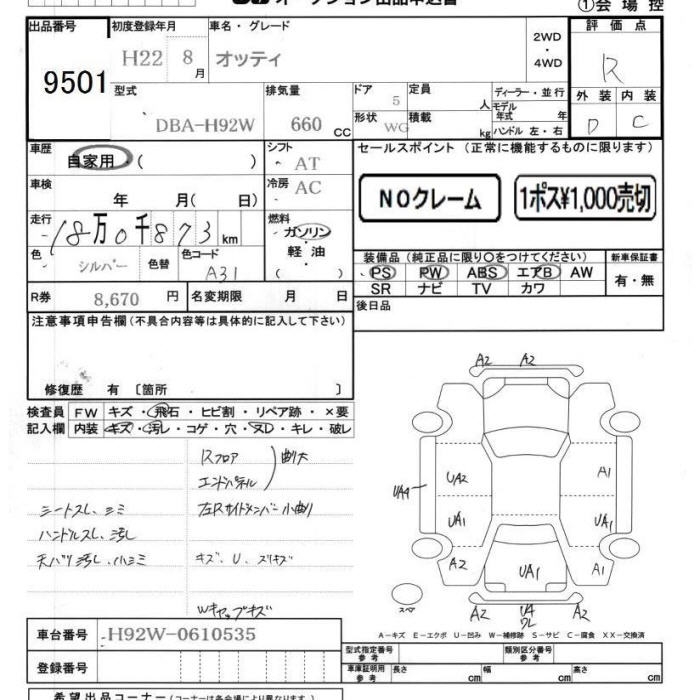 ①会場控
出品番号 初度登録年月 車名・グレード 2WD・4WD 評価点
9501 H22 8月 オッティ R
型式 排気量 ドア 定員 ディーラー・並行 外装 内装
DBA-H92W 660 CC 5 人 モデル年式 年 D C
形状 WG 積載 kg ハンドル 左・右
車歴 自家用 ( ) シフト AT セールスポイント (正常に機能するものに限ります)
車検 年 月( 日) 冷房 AC NOクレーム 1ポス¥1,000売切
走行 18万0千873km 燃料 ガソリン 軽・油 ( )
色 シルバー 色替 色コード A31
装備品 (純正品に限り○をつけてください) 新車保証書
PS PW ABS エアB AW 有・無
SR ナビ TV カワ
R券 8,670 円 名変期限 月 日
後日品
注意事項申告欄 (不具合内容等は具体的に記入して下さい)
修復歴 有 〔箇所 〕
検査員 FW キズ・飛石・ヒビ割・リペア跡・×要
記入欄 内装 キズ・汚レ・コゲ・穴・ヌD・キレ・破レ
Rフロア
エンドパネル 曲大
シートスレ、シミ 左Rサイドメンバー小曲り
ハンドルスレ、汚レ
天バリ汚レ、小シミ キズ、U、スリキズ
Wキャップキズ
A2 A2
UA4 UA2 A1
UA1 UA1
A2 UA1 A1
スペア A2 U4 A2
ワレ
A-キズ E-エクボ U-凹み W-補修跡 S-サビ C-腐食 XX-交換済
車台番号 H92W-0610535
登録番号
型式指定番号 参考 類別区分番号 参考
車庫証明用 参考 長さ cm 幅 cm 高さ cm
希望出品コーナー (コーナーは各会場により異なります。)